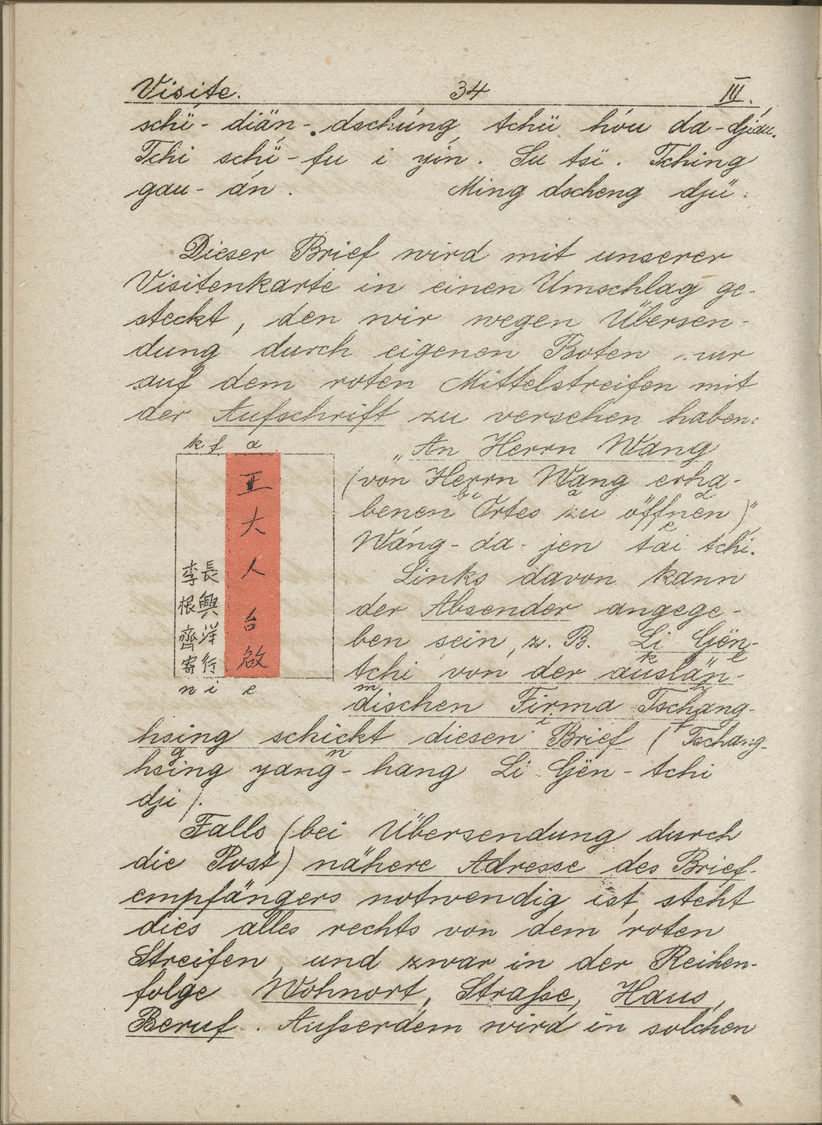 Visite. 34 III.
schï- diän- dschúng tchü hóu da- djáu.
Tchi schï- fu i yin. Su tsï. Tching
gau- án. Ming dscheng djü.
Dieser Brief wird mit unserer
Visitenkarte in einen Umschlag ge-
steckt, den wir wegen Übersen-
dung durch eigenen Boten nur
auf dem roten Mittelstreifen mit
der Aufschrift zu versehen haben:
k f a
王大人台啟
長興洋行
李根齊寄
n i e
„An Herrn Wang
(von Herrn Wang erha-
b c a d
benen Ortes zu öffnen)"
e
Wáng- da- jen tai tchi.
Links davon kann
der Absender angege-
ben sein, z. B. Li Gën-
k l
tchi von der auslän-
m h
dischen Firma Tschang-
i f
hsing schickt diesen Brief (Tschang-
g n
hsing yang- hang Li Gën- tchi
dji).
Falls (bei Übersendung durch
die Post) nähere Adresse des Brief-
empfängers notwendig ist, steht
dies alles rechts von dem roten
Streifen und zwar in der Reihen-
folge Wohnort, Straße, Haus,
Beruf. Außerdem wird in solchen